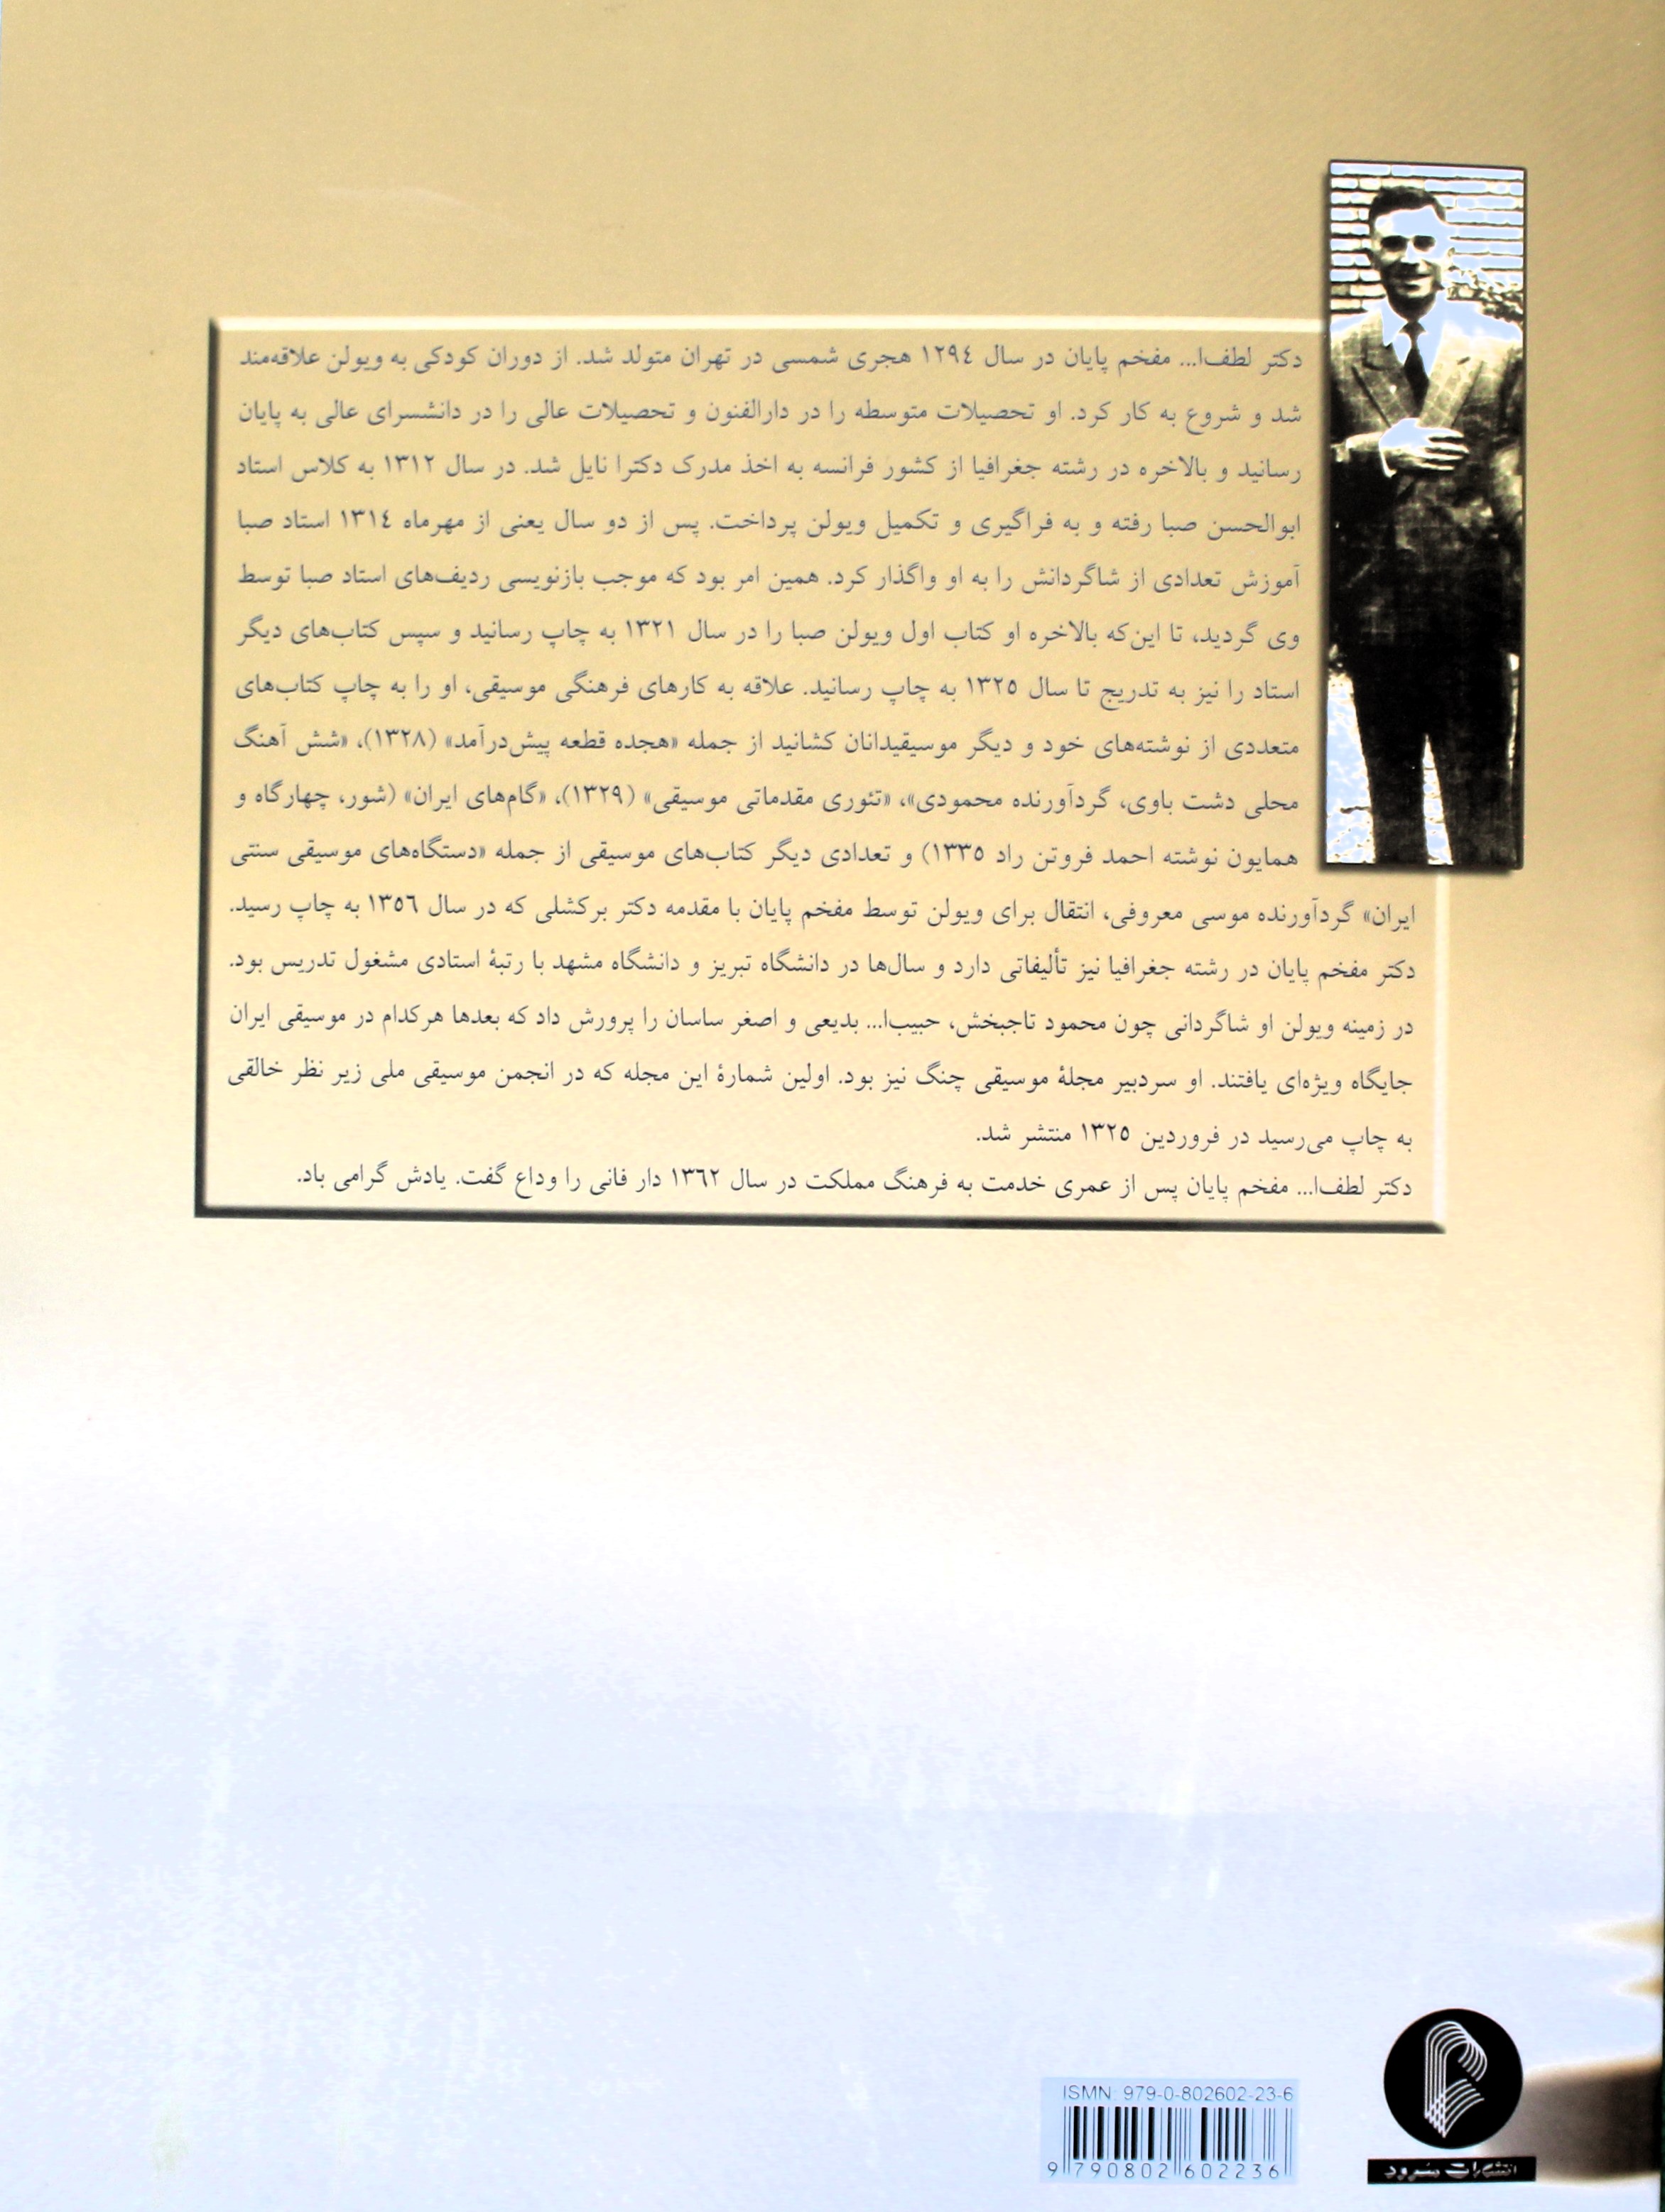 دکتر لطف‌ا... مفخم پایان در سال ۱۲۹۴ هجری شمسی در تهران متولد شد. از دوران کودکی به ویولن علاقه‌مند
شد و شروع به کار کرد. او تحصیلات متوسطه را در دارالفنون و تحصیلات عالی را در دانشسرای عالی به پایان
رسانید و بالاخره در رشته جغرافیا از کشور فرانسه به اخذ مدرک دکترا نایل شد. در سال ۱۳۱۲ به کلاس استاد
ابوالحسن صبا رفته و به فراگیری و تکمیل ویولن پرداخت. پس از دو سال یعنی از مهرماه ۱۳۱۴ استاد صبا
آموزش تعدادی از شاگردانش را به او واگذار کرد. همین امر بود که موجب بازنویسی ردیف‌های استاد صبا توسط
وی گردید، تا این‌که بالاخره او کتاب اول ویولن صبا را در سال ۱۳۲۱ به چاپ رسانید و سپس کتاب‌های دیگر
استاد را نیز به تدریج تا سال ۱۳۲۵ به چاپ رسانید. علاقه به کارهای فرهنگی موسیقی، او را به چاپ کتاب‌های
متعددی از نوشته‌های خود و دیگر موسیقیدانان کشانید از جمله «هجده قطعه پیش‌درآمد» (۱۳۲۸)، «شش آهنگ
محلی دشت باوی، گردآورنده محمودی»، «تئوری مقدماتی موسیقی» (۱۳۲۹)، «گام‌های ایران» (شور، چهارگاه و
همایون نوشته احمد فروتن راد ۱۳۳۵) و تعدادی دیگر کتاب‌های موسیقی از جمله «دستگاه‌های موسیقی سنتی
ایران» گردآورنده موسی معروفی، انتقال برای ویولن توسط مفخم پایان با مقدمه دکتر برکشلی که در سال ۱۳۵۶ به چاپ رسید.
دکتر مفخم پایان در رشته جغرافیا نیز تألیفاتی دارد و سال‌ها در دانشگاه تبریز و دانشگاه مشهد با رتبۀ استادی مشغول تدریس بود.
در زمینه ویولن او شاگردانی چون محمود تاجبخش، حبیب‌ا... بدیعی و اصغر ساسان را پرورش داد که بعدها هرکدام در موسیقی ایران
جایگاه ویژه‌ای یافتند. او سردبیر مجلۀ موسیقی چنگ نیز بود. اولین شمارۀ این مجله که در انجمن موسیقی ملی زیر نظر خالقی
به چاپ می‌رسید در فروردین ۱۳۲۵ منتشر شد.
دکتر لطف‌ا... مفخم پایان پس از عمری خدمت به فرهنگ مملکت در سال ۱۳۶۲ دار فانی را وداع گفت. یادش گرامی باد.
ISMN: 979-0-802602-23-6
9 790802 602236
انتشارات سرود